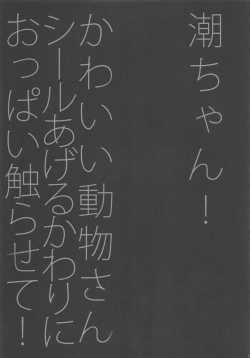 潮ちゃん！
かわいい動物さん
シールあげるかわりに
おっぱい触らせて！